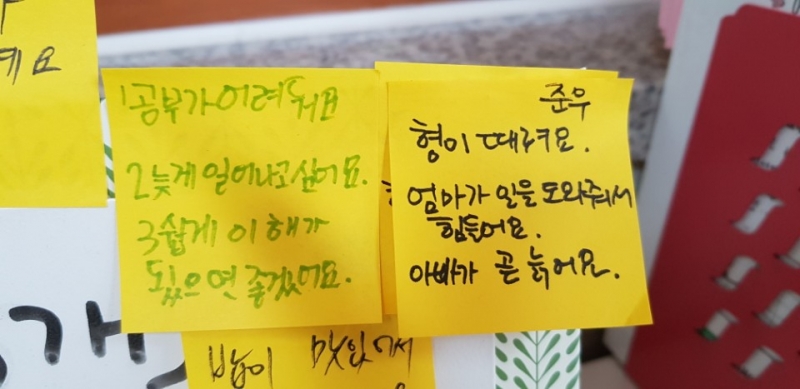 1공부가어려워요
2늦게 일어나고싶어요.
3쉽게 이해가
됬으면 좋겠어요.
준우
형이 때려요.
엄마가 일을 도와줘서
힘들어요.
아빠가 곧 늙어요.
밥이 맛있어서
개